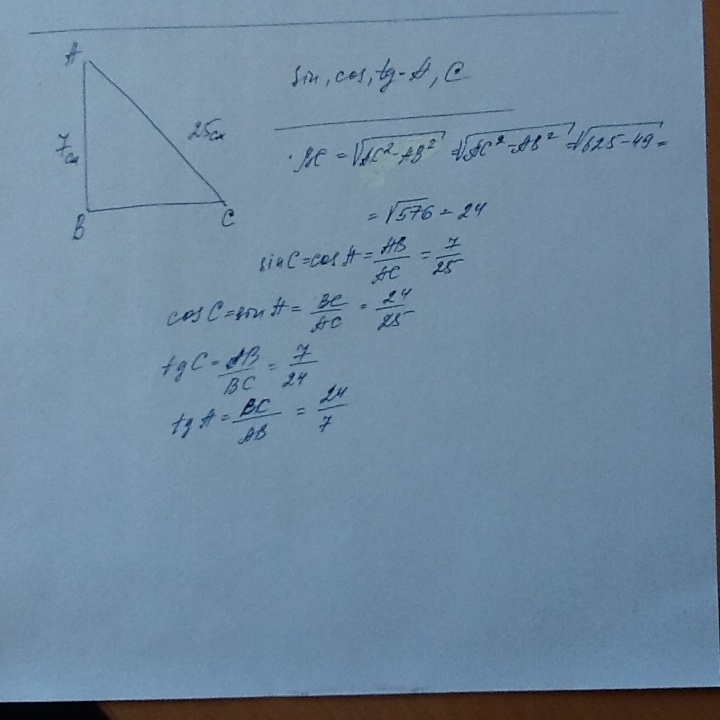 A
7 см
25 см
B
C
sin, cos, tg - A, C
BC = √AC² - AB² = √AC² - AB² = √625 - 49 =
= √576 = 24
sin C = cos A = AB/AC = 7/25
cos C = sin A = BC/AC = 24/25
tg C = AB/BC = 7/24
tg A = BC/AB = 24/7